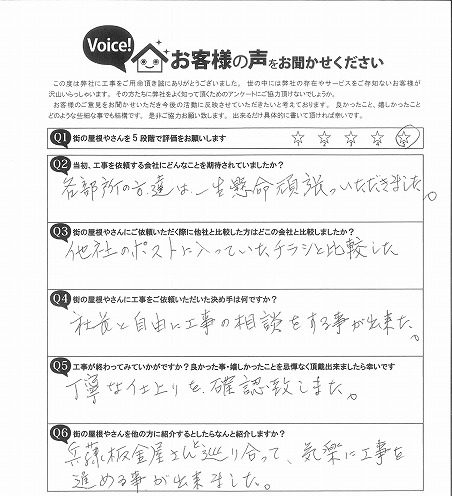 Voice!
お客様の声をお聞かせください
この度は弊社に工事をご用命頂き誠にありがとうございました。 世の中には弊社の存在やサービスをご存知ないお客様が
沢山いらっしゃいます。 その方たちに弊社をよく知って頂くためのアンケートにご協力頂けないでしょうか。
お客様のご意見をお聞かせいただき今後の活動に反映させていただきたいと考えております。 良かったこと、嬉しかったこと
どのような些細な事でも結構です。 是非ご協力お願い致します。 出来るだけ具体的に書いて頂ければ幸いです。
Q1 街の屋根やさんを5段階で評価をお願いします ☆ ☆ ☆ ☆ ☆
Q2 当初、工事を依頼する会社にどんなことを期待されていましたか?
各部所の方達は、一生懸命頑張っいただきました。
Q3 街の屋根やさんにご依頼いただく際に他社と比較した方はどこの会社と比較しましたか?
他社のポストに入っていた、チラシと比較した
Q4 街の屋根やさんに工事をご依頼いただいた決め手は何ですか?
社長と自由に工事の相談をする事が出来た。
Q5 工事が終わってみていかがですか?良かった事・嬉しかったことを忌憚なく頂戴出来ましたら幸いです
丁寧な仕上りを、確認致しました。
Q6 街の屋根やさんを他の方に紹介するとしたらなんと紹介しますか?
兵藤板金屋さんと巡り合って、気楽に工事を
進める事が出来ました。